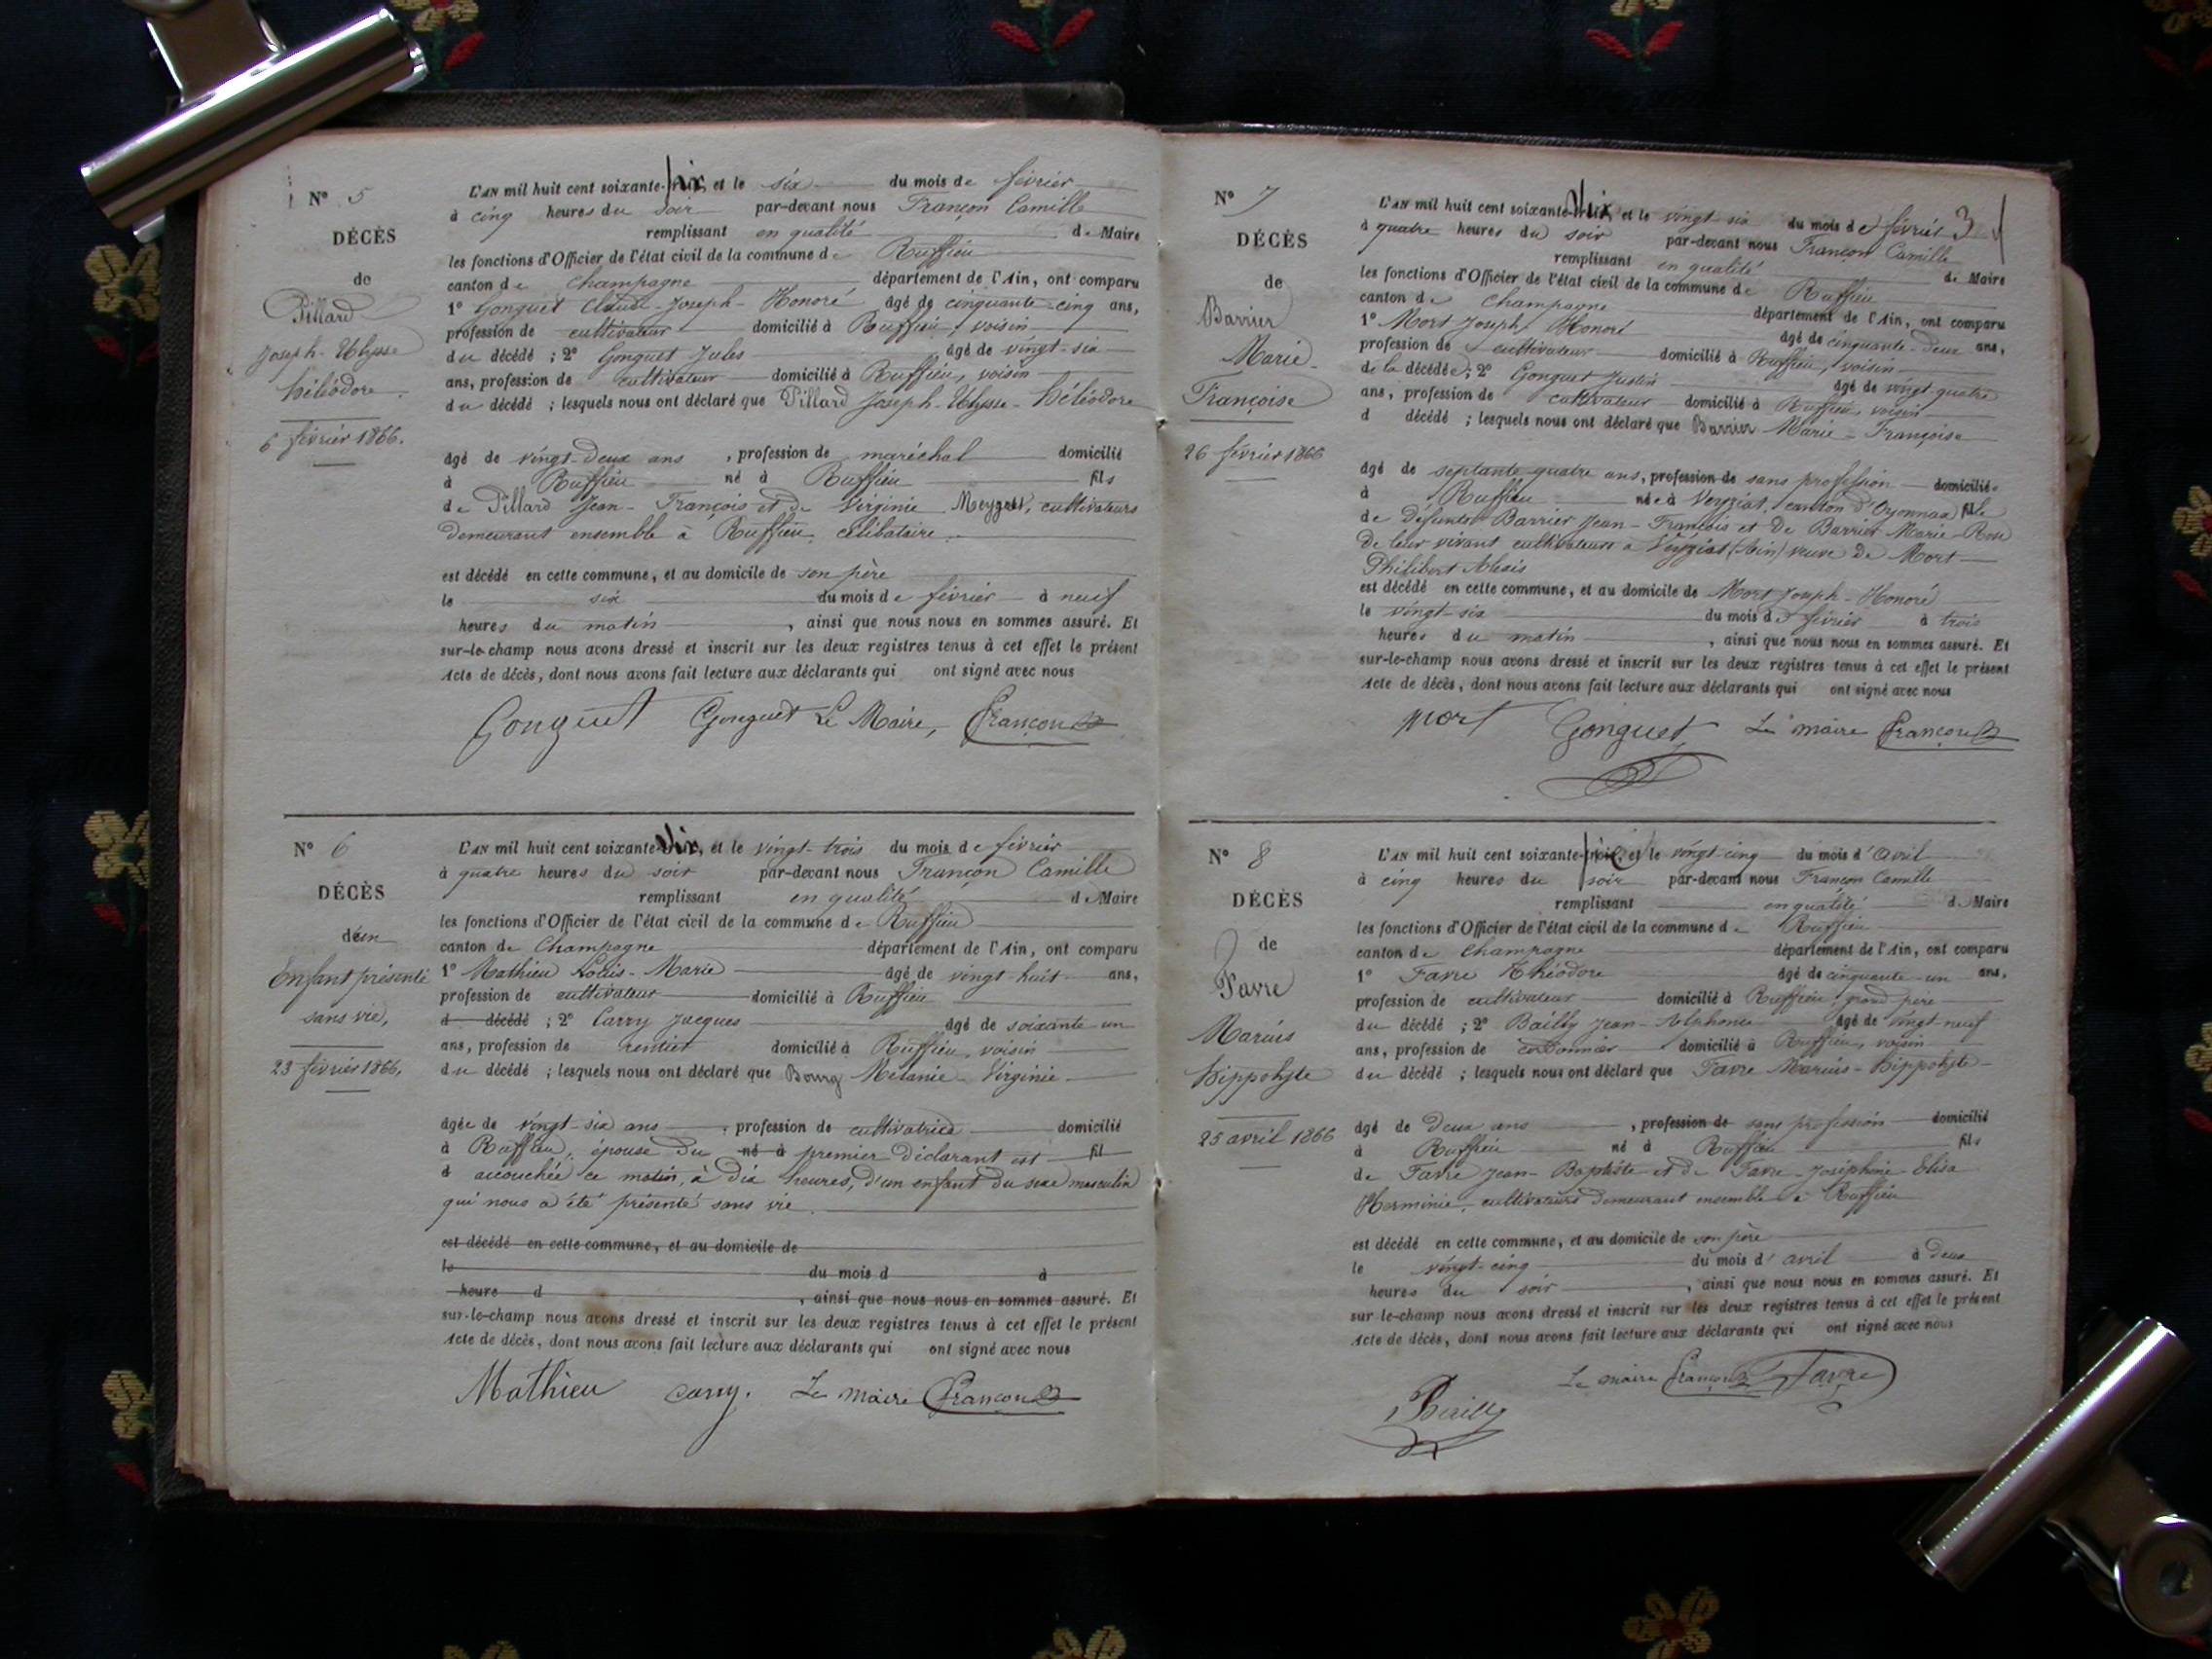 N° 5
DÉCÈS
de
Pillard
Joseph-Ulysse
Héliodore.
6 février 1866.
L'AN mil huit cent soixante-six, et le six du mois de février
à cinq heures du soir par-devant nous Françon Camille
remplissant en qualité de Maire
les fonctions d'Officier de l'état civil de la commune de Ruffieu
canton de Champagne département de l'Ain, ont comparu
1° Gonguet Claude-Joseph-Honoré âgé de cinquante-cinq ans,
profession de cultivateur domicilié à Ruffieu, voisin
du décédé ; 2° Gonguet Jules âgé de vingt-six
ans, profession de cultivateur domicilié à Ruffieu, voisin
du décédé ; lesquels nous ont déclaré que Pillard Joseph-Ulysse-Héliodore
âgé de vingt-deux ans, profession de maréchal domicilié
à Ruffieu né à Ruffieu fils
de Pillard Jean-François et de Virginie Meygret, cultivateurs
demeurant ensemble à Ruffieu, célibataire.
est décédé en cette commune, et au domicile de son père
le six du mois de février à neuf
heures du matin, ainsi que nous nous en sommes assuré. Et
sur-le-champ nous avons dressé et inscrit sur les deux registres tenus à cet effet le présent
Acte de décès, dont nous avons fait lecture aux déclarants qui ont signé avec nous
Gonguet Gonguet Le Maire, Françon
N° 6
DÉCÈS
d'un
Enfant présenté
sans vie,
23 février 1866.
L'AN mil huit cent soixante-six, et le vingt-trois du mois de février
à quatre heures du soir par-devant nous Françon Camille
remplissant en qualité de Maire
les fonctions d'Officier de l'état civil de la commune de Ruffieu
canton de Champagne département de l'Ain, ont comparu
1° Mathieu Louis-Marie âgé de vingt-huit ans,
profession de cultivateur domicilié à Ruffieu
d décédé ; 2° Carry Jacques âgé de soixante-un
ans, profession de rentier domicilié à Ruffieu, voisin
du décédé ; lesquels nous ont déclaré que Bourg Mélanie-Virginie
âgée de vingt-six ans, profession de cultivatrice domicilié
à Ruffieu, épouse du né à premier déclarant est fil
d accouchée ce matin, à dix heures, d'un enfant du sexe masculin
qui nous a été présenté sans vie.
est décédé en cette commune, et au domicile de
le du mois d à
heure d, ainsi que nous nous en sommes assuré. Et
sur-le-champ nous avons dressé et inscrit sur les deux registres tenus à cet effet le présent
Acte de décès, dont nous avons fait lecture aux déclarants qui ont signé avec nous
Mathieu Carry. Le maire Françon
3
N° 7
DÉCÈS
de
Barrier
Marie-
Françoise
26 février 1866
L'AN mil huit cent soixante-six, et le vingt-six du mois de février
à quatre heures du soir par-devant nous Françon Camille
remplissant en qualité de Maire
les fonctions d'Officier de l'état civil de la commune de Ruffieu
canton de Champagne département de l'Ain, ont comparu
1° Mort Joseph Honoré âgé de cinquante-deux ans,
profession de cultivateur domicilié à Ruffieu, voisin
de la décédée ; 2° Gonguet Justin âgé de vingt-quatre
ans, profession de cultivateur domicilié à Ruffieu, voisin
d décédé ; lesquels nous ont déclaré que Barrier Marie-Françoise
âgé de septante-quatre ans, profession de sans profession domiciliée
à Ruffieu née à Veyziat, canton d'Oyonnax fille
de défunts Barrier Jean-François et de Barrier Marie-Rose
de leur vivant cultivateurs à Veyziat (Ain) veuve de Mort
Philibert Alexis
est décédé en cette commune, et au domicile de Mort Joseph-Honoré
le vingt-six du mois de février à trois
heures du matin, ainsi que nous nous en sommes assuré. Et
sur-le-champ nous avons dressé et inscrit sur les deux registres tenus à cet effet le présent
Acte de décès, dont nous avons fait lecture aux déclarants qui ont signé avec nous
Mort Gonguet Le maire Françon
N° 8
DÉCÈS
de
Favre
Marius
Hippolyte
25 avril 1866
L'AN mil huit cent soixante-six, et le vingt-cinq du mois d'avril
à cinq heures du soir par-devant nous Françon Camille
remplissant en qualité de Maire
les fonctions d'Officier de l'état civil de la commune de Ruffieu
canton de Champagne département de l'Ain, ont comparu
1° Favre Théodore âgé de cinquante-un ans,
profession de cultivateur domicilié à Ruffieu, grand père
du décédé ; 2° Bailly Jean-Alphonse âgé de vingt-neuf
ans, profession de cordonnier domicilié à Ruffieu, voisin
du décédé ; lesquels nous ont déclaré que Favre Marius-Hippolyte
âgé de deux ans, profession de sans profession domicilié
à Ruffieu né à Ruffieu fils
de Favre Jean-Baptiste et de Favre Joséphine-Elisa
Herminie, cultivateurs demeurant ensemble à Ruffieu
est décédé en cette commune, et au domicile de son père
le vingt-cinq du mois d'avril à deux
heures du soir, ainsi que nous nous en sommes assuré. Et
sur-le-champ nous avons dressé et inscrit sur les deux registres tenus à cet effet le présent
Acte de décès, dont nous avons fait lecture aux déclarants qui ont signé avec nous
Le maire Françon Favre
Bailly